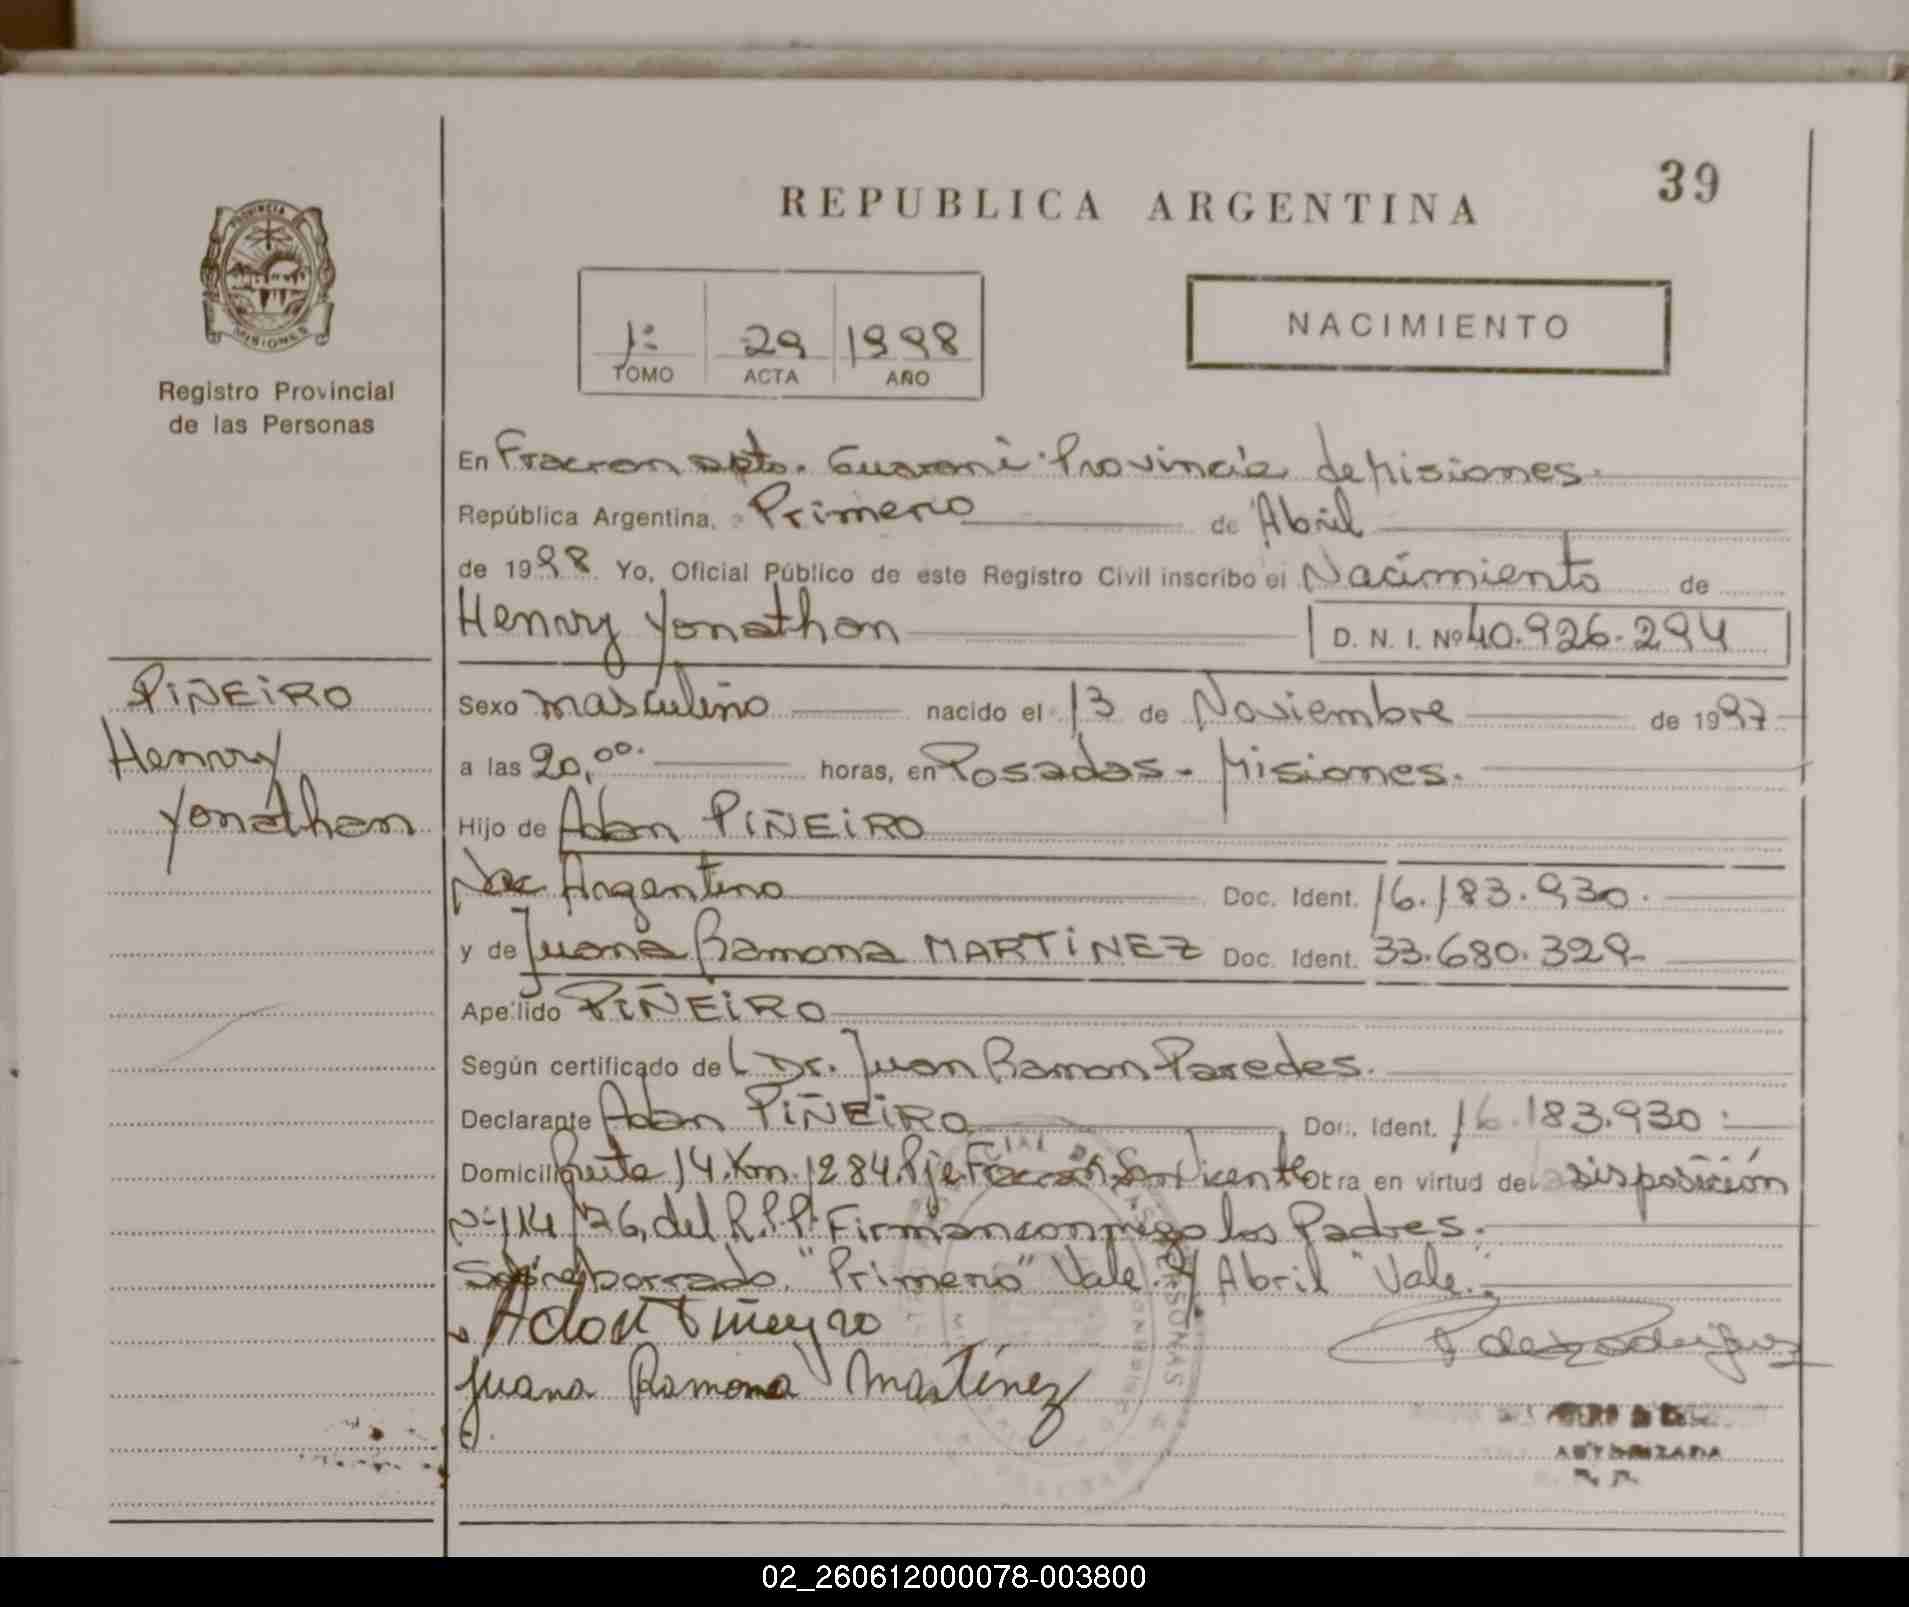 39
REPUBLICA ARGENTINA
PROVINCIA
MISIONES
Registro Provincial
de las Personas
1º 29 1998
TOMO ACTA AÑO
NACIMIENTO
En Fracran Dpto. Guarani Provincia de Misiones.
República Argentina, a Primero de Abril
de 1998 Yo, Oficial Público de este Registro Civil inscribo el Nacimiento de
Henrry Yonathan D. N. I. Nº 40.926.294
PIÑEIRO
Henrry
Yonathan
Sexo masculino nacido el 13 de Noviembre de 1997
a las 20,00. horas, en Posadas - Misiones.
Hijo de Adan PIÑEIRO
Nac Argentino Doc. Ident. 16.183.930.
y de Juana Ramona MARTINEZ Doc. Ident. 33.680.329-
Apellido PIÑEIRO
Según certificado del Dr. Juan Ramon Paredes.
Declarante Adan PIÑEIRO Doc. Ident. 16.183.930
Domicilio Ruta 14. Km. 1284. Pje Fracrán, San Vicente Obra en virtud de Disposición
Nº 114/76, del R.P.P. Firman conmigo los Padres.
Sobreborrado. "Primero" Vale. y Abril "Vale".
Adan Piñeyro
Juana Ramona Martinez
AUTORIZADA
02_260612000078-003800